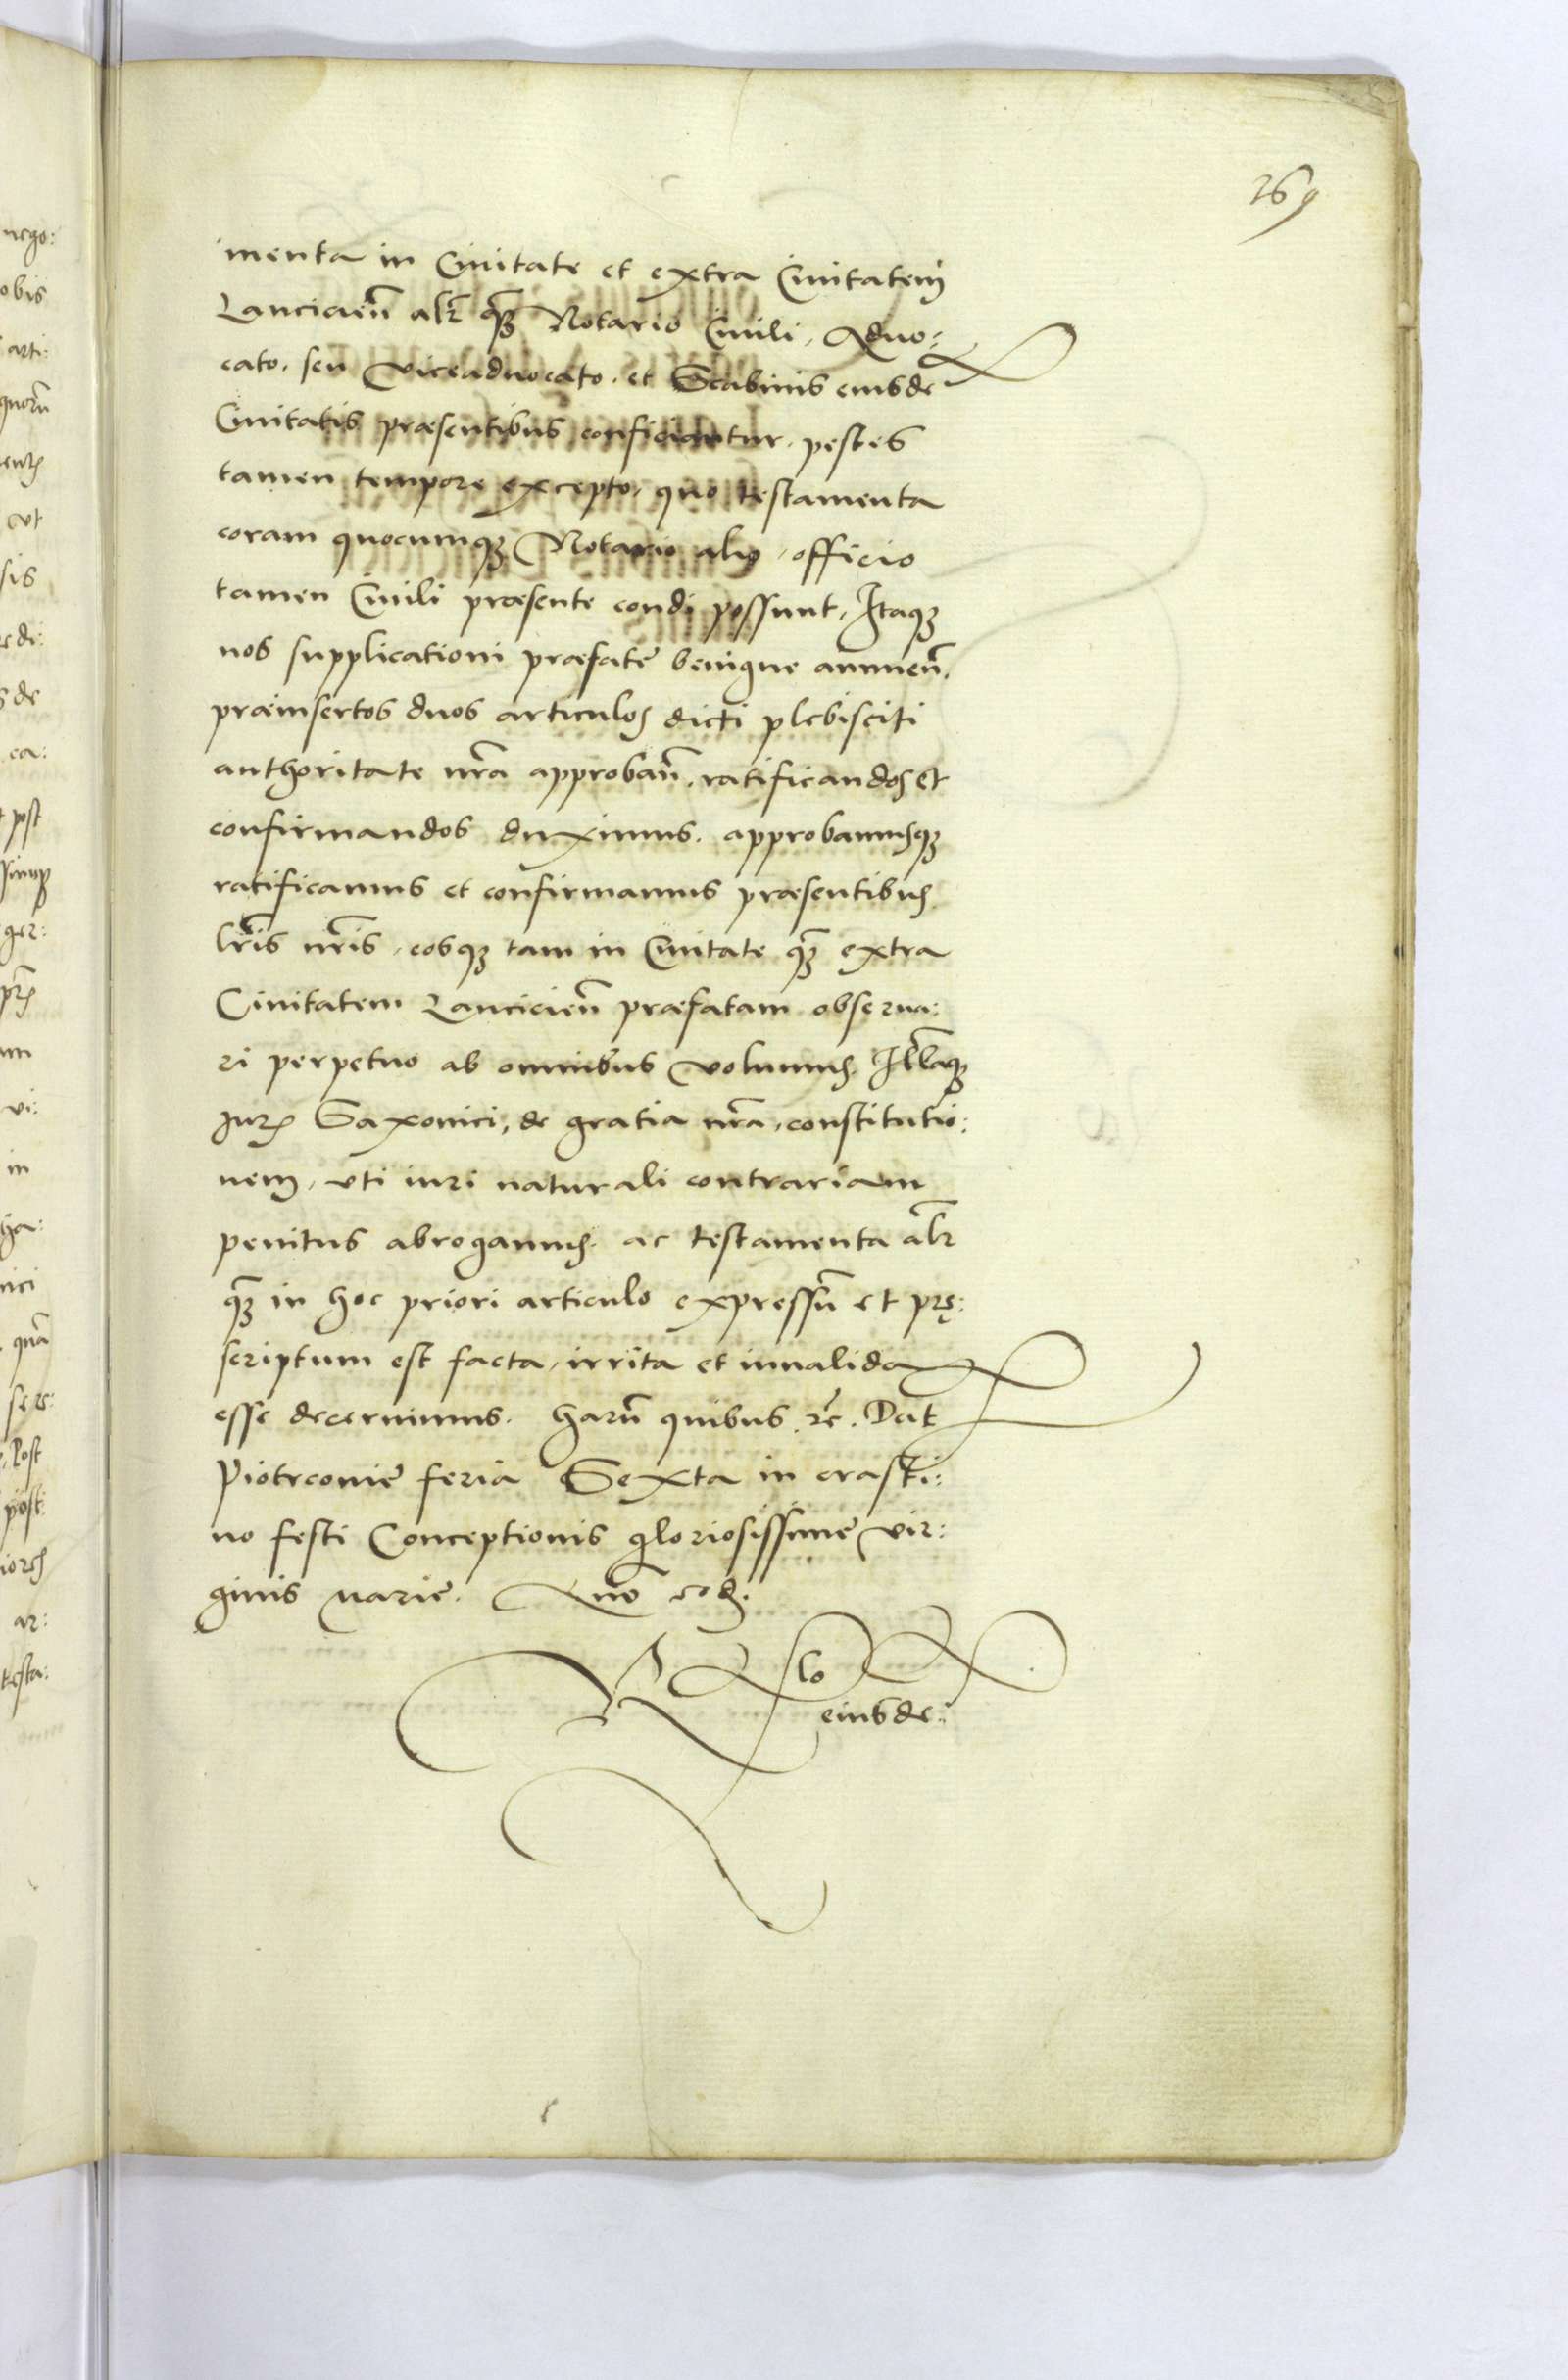 269
menta in Ciuitate et extra Ciuitatem
Lancicieñ alr̃ q̃ꝫ Notario Ciuili, Aduo:
cato. seu Viceaduocato. et Scabinis eiusde
Ciuitatis præsentibus conficiantur. pestis
tamen tempore excepto, quo testamenta
coram quocumqꝫ Notario alio, officio
tamen Ciuili præsente condi possunt, Itaqꝫ
nos supplicationi præfatę benigne annueñ.
præinsertos duos articulos dicti plebisciti
authoritate nr̃a approbañ. ratificandos et
confirmandos duximus. approbamusqꝫ
ratificamus et confirmamus præsentibus
lr̃is nr̃is, eosqꝫ tam in Ciuitate q̃ꝫ extra
Ciuitatem Lancicieñ præfatam obserua:
ri perpetuo ab omnibus volumus. Illaqꝫ
Iuris Saxonici, de gratia nr̃a, constitutio:
nem, vti iuri naturali contrariam
penitus abrogamus. ac testamenta alr̃
q̃ꝫ in hoc priori articulo expressũ et prę:
scriptum est facta, irrita et inualida
esse decernimus. harũ quibus rc̃. Dat
Piotrcouię feria Sexta in crasti:
no festi Conceptionis gloriosissimę vir:
ginis Marię. Anno eod.
eiusde:
nego:
obis
arti:
quorũ
vt
sis
de
ca:
post
ger:
vi:
in
ha:
nici
quã
Post
post:
iores
ar:
testa: